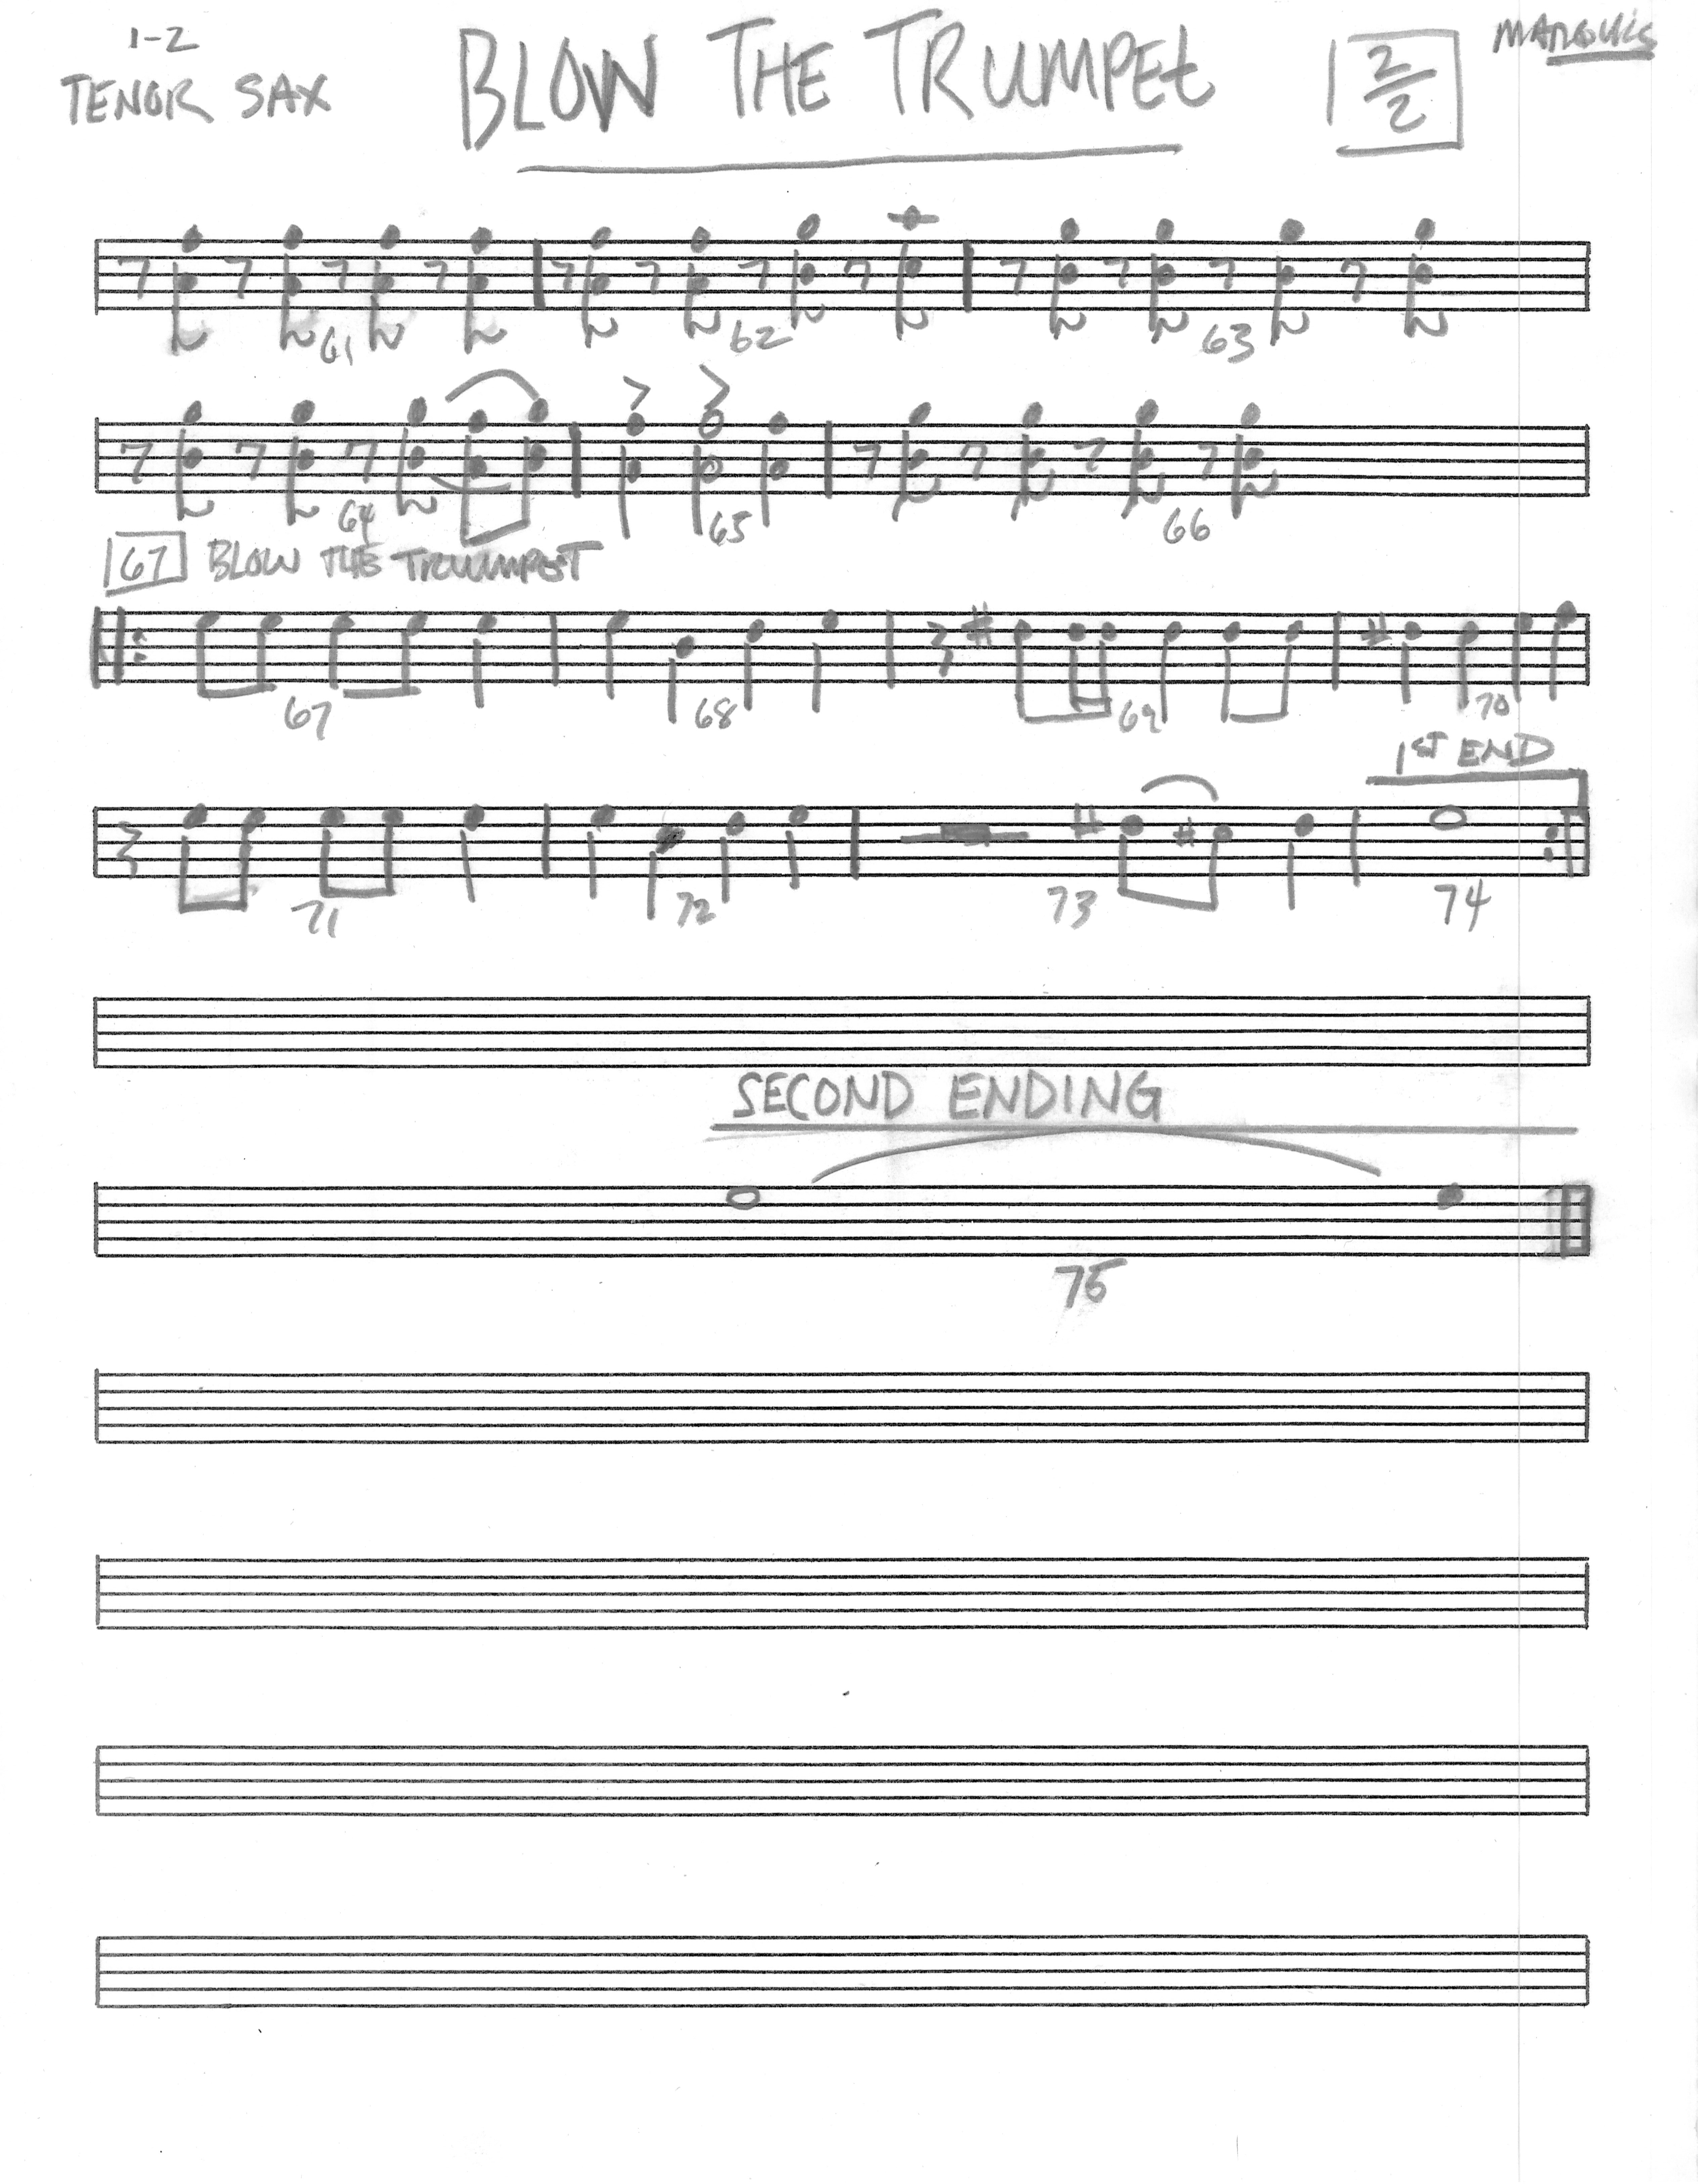 1-2
TENOR SAX
BLOW THE TRUMPET
2/2
MARQUIS
61 62 63
64 65 66
67 BLOW THE TRUMPET
67 68 69 70
1ST END
71 72 73 74
SECOND ENDING
75